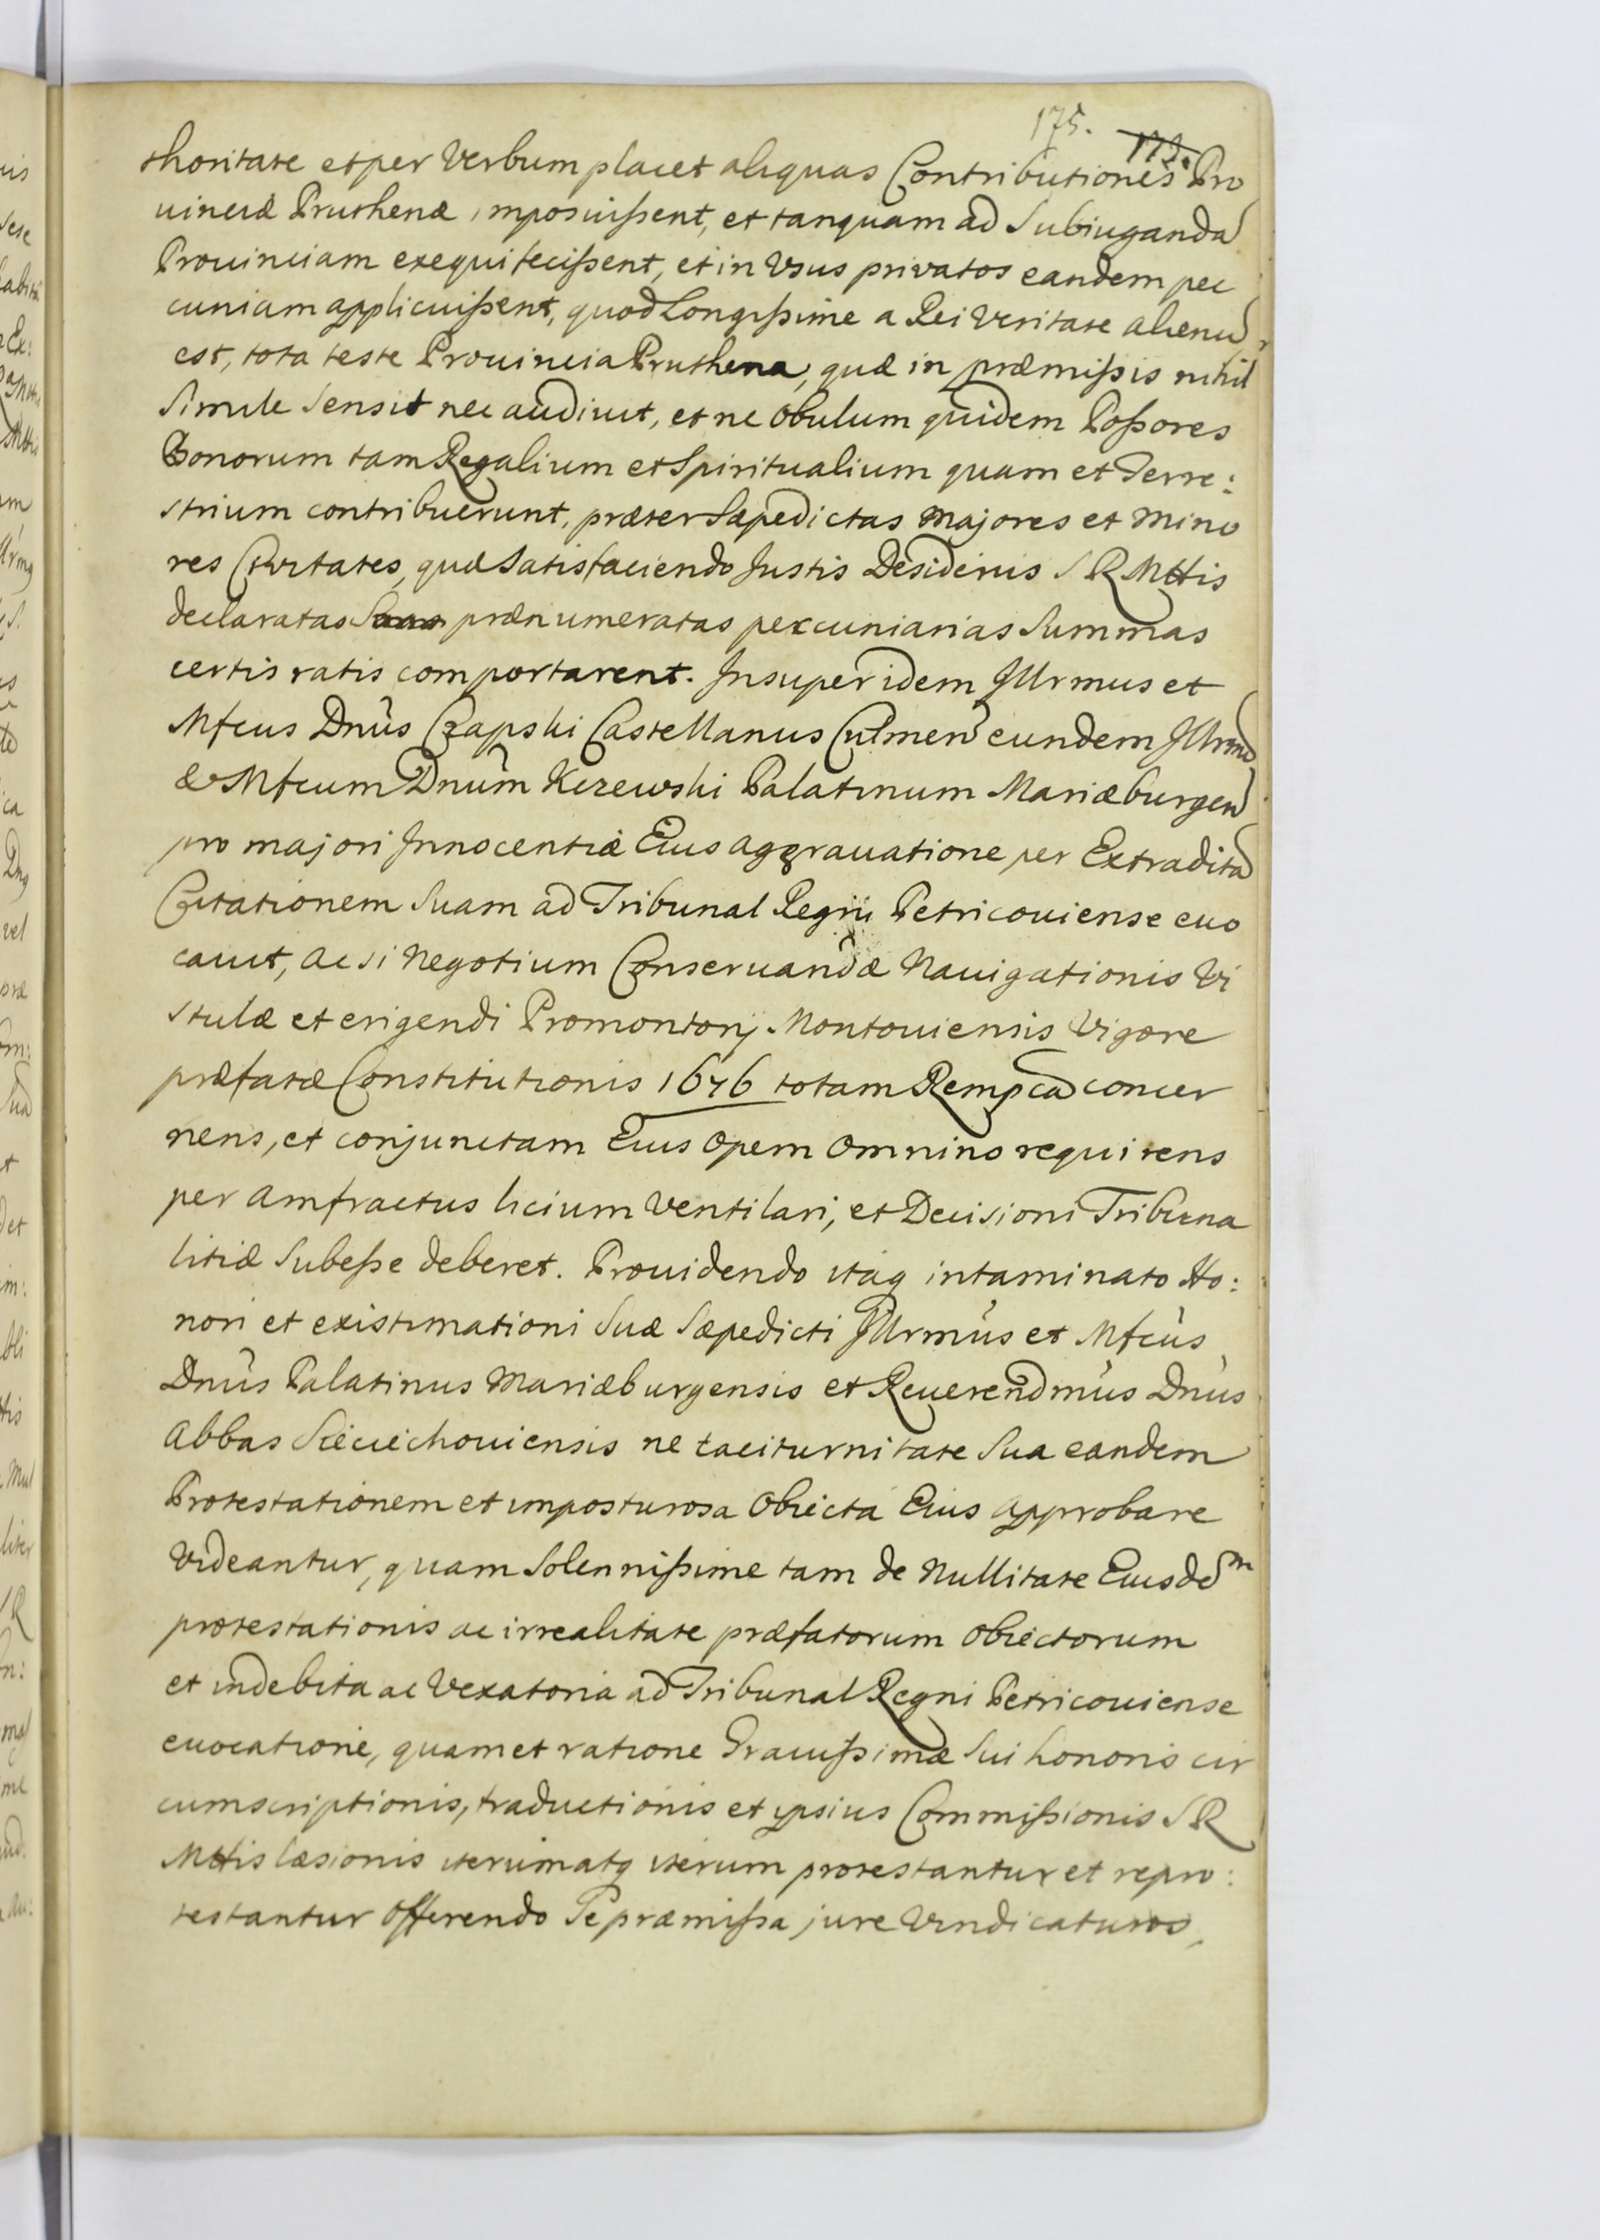 175. 173.
thoritate et per Verbum placet aliquas Contributiones Pro
uinciæ Pruthenæ imposuißent, et tanquam ad Subiuganda
Prouinciam exequi fecißent, et in Vsus privatos eandem pec
cuniam applicuißent, quod Longißime a Rei Veritate alienu
est, tota teste Prouincia Pruthena, quæ in præmißis nihil
Simile Sensit nec audiuit, et ne Obulum quidem Poßores
Bonorum tam Regalium et Spiritualium quam et Terre:
strium contribuerunt, præter Sæpedictas Majores et Mino
res Civitates, quæ Satisfaciendo Justis Desiderijs S R Mttis
declaratas prænumeratas peccuniarias Summas
certis ratis comportarent. Insuper idem Illrmus et
Mfcus Dnus Czapski Castellanus Culmen eundem Illrmu
& Mfcum Dnum Kczewski Palatinum Mariæburgen
pro majori Innocentiæ Eius aggrauatione per Extradita
Citationem Suam ad Tribunal Regni Petricouiense euo
cauit, ac si Negotium Conseruandæ Nauigationis Vi
stulæ et erigendi Promontorij Montouiensis Vigore
præfatæ Constitutionis 1676 totam Rempca concer
nens, et conjunctam Eius Opem Omnino requirens
per Amfractus licium Ventilari, et Decisioni Tribuna
litiæ Subeße deberet. Prouidendo itaq intaminato Ho:
nori et existimationi Suæ Sæpedicti Illrmus et Mfcus
Dnus Palatinus Mariæburgensis et Reuerendmus Dnus
Abbas Sieciechouiensis ne taciturnitate Sua eandem
Protestationem et imposturosa Obiecta Eius approbare
Videantur, quam Solennißime tam de Nullitate Eiusdem
protestationis ac irrealitate præfatorum Obiectorum
et indebita ac Vexatoria ad Tribunal Regni Petricouiense
euocatione, quam et ratione Grauißimæ Sui honoris cir
cumscriptionis, traductionis et ipsius Commißionis S R
Mttis læsionis iterum atq iterum protestantur et repro:
testantur Offerendo Se præmißa jure Vindicaturos,